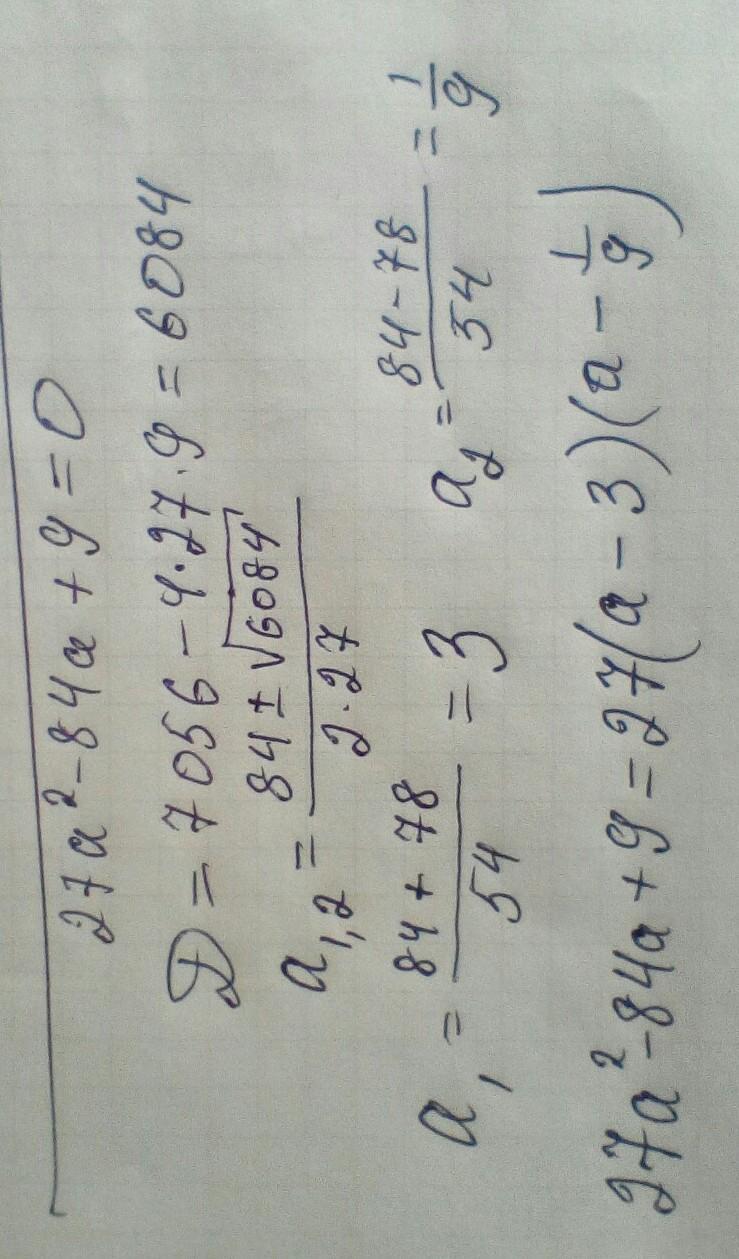 27a² - 84a + 9 = 0
D = 7056 - 4·27·9 = 6084
a₁,₂ = (84 ± √6084) / (2·27)
a₁ = (84 + 78) / 54 = 3    a₂ = (84 - 78) / 54 = 1/9
27a² - 84a + 9 = 27(a - 3)(a - 1/9)